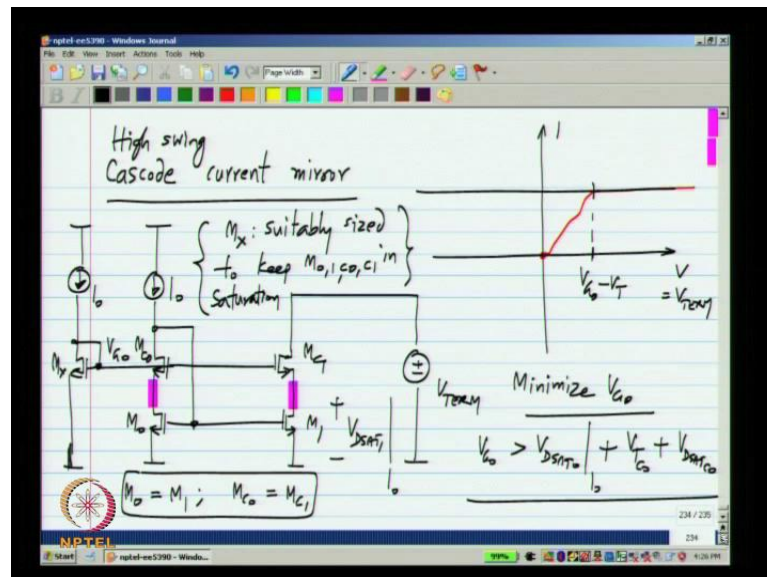 nptel-ee5390 - Windows Journal
File Edit View Insert Actions Tools Help
Page Width
B I
High swing
Cascode current mirror
Mx : suitably sized
to keep M0,1,c0,c1 in
saturation
I0
I0
Mx
VG0
Mc0
Mc1
M0
M1
+
VDSAT1 | I0
-
±
VTERM
M0 = M1 ; Mc0 = Mc1
I
VG0 - VT
V
= VTERM
Minimize VG0
VG0 > VDSAT0 | I0 + VTc0 + VDSATc0
234 / 235
234
NPTEL
Start
nptel-ee5390 - Windo...
99%
4:26 PM